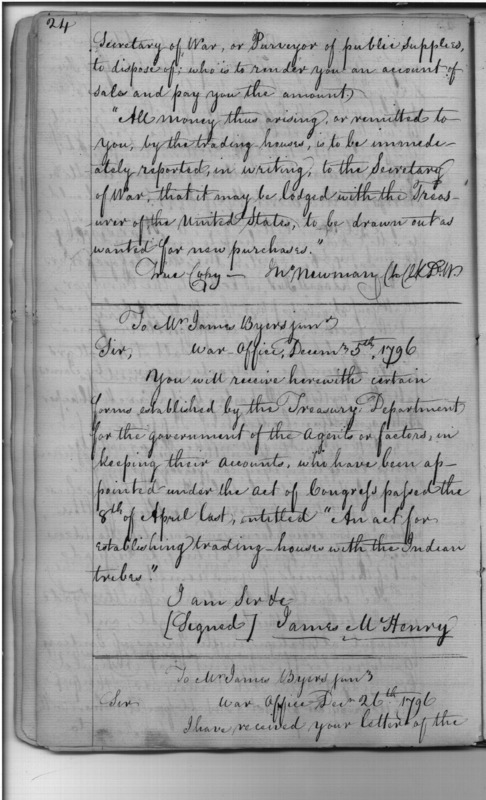 24
Secretary of War, or Purveyor of public supplies,
to dispose of; who is to render you an account of
sales and pay you the amount,
"All money thus arising, or remitted to
you, by the trading houses, is to be immede-
ately reported, in writing, to the Secretary
of War, that it may be lodged with the Treas-
urer of the United States, to be drawn out as
wanted for new purchases."
True Copy — Wm Newman Ch Clk D. W
To Mr James Byers junr
Sir, War Office, Decemr 5th, 1796
You will receive herewith certain
forms established by the Treasury Department
for the government of the Agents or factors, in
keeping their accounts, who have been ap-
pointed under the act of Congress passed the
8th of April last, entitled "An act for
establishing trading-houses with the Indian
tribes."
I am Sir &c
[Signed] James McHenry
To Mr James Byers junr
Sir War Office Decr 26th 1796
I have received your letter of the